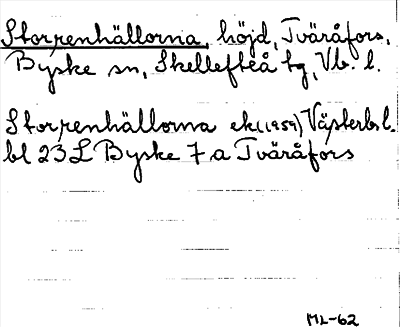 Storrenhällorna, höjd, Tväråfors,
Byske sn, Skellefteå tg, Vb. l.
Storrenhällorna ek (1959) Västerb. l.
bl 23L Byske 7a Tväråfors
ML-62